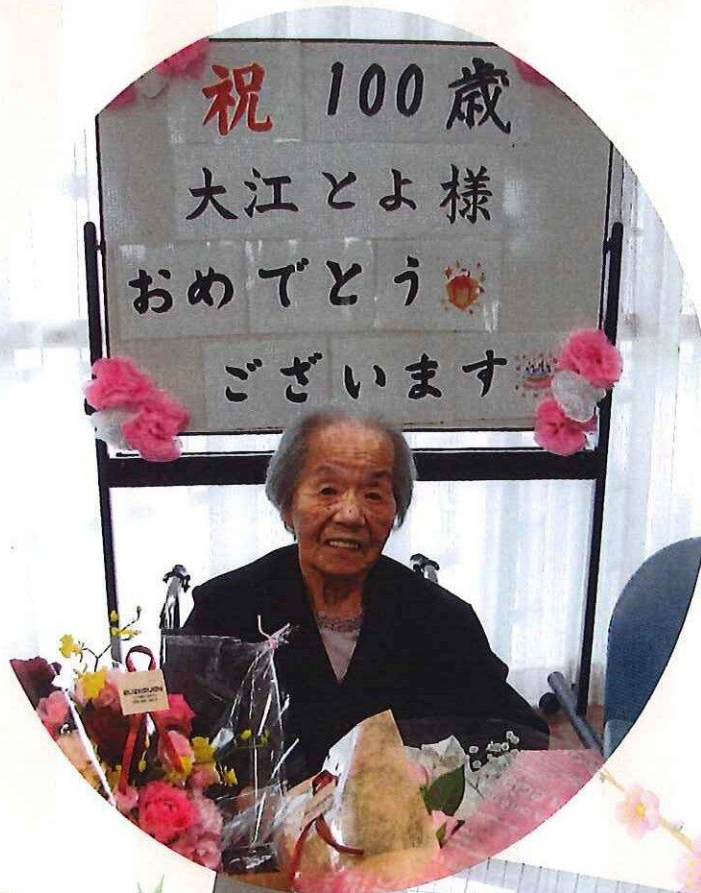 祝 100歳
大江とよ様
おめでとう
ございます